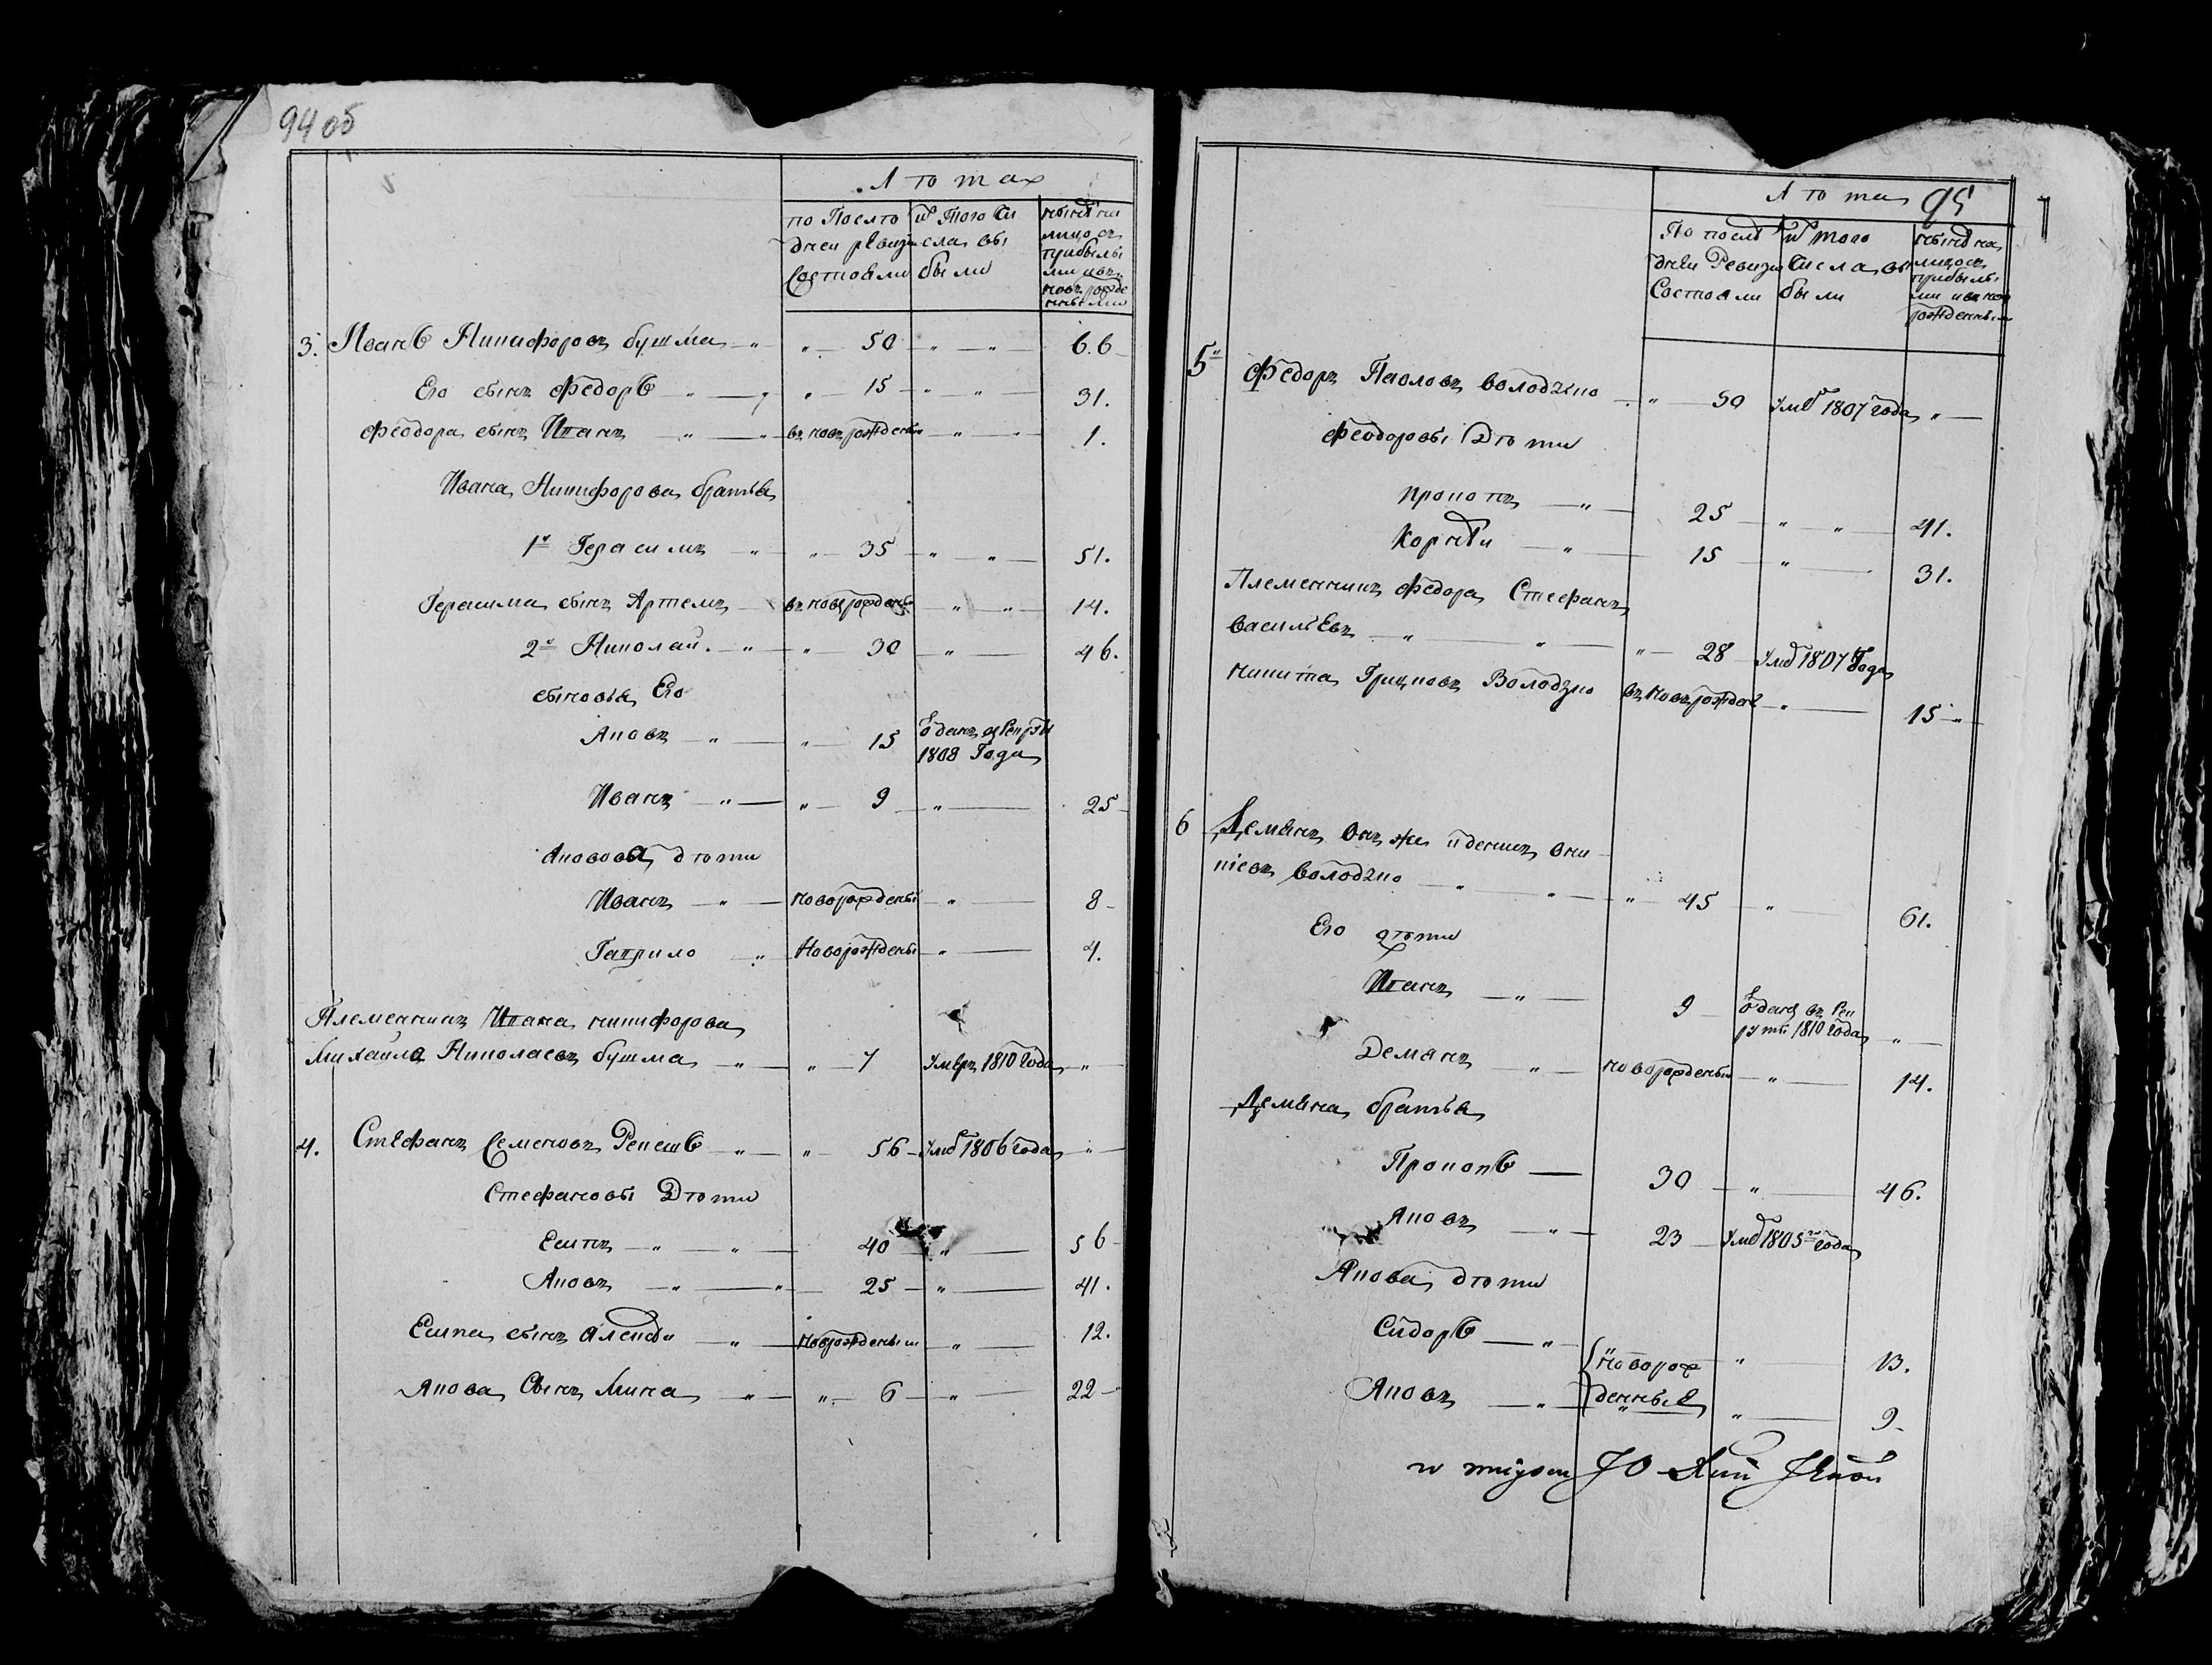 94 об
Лѣтах
по Послѣдней ревизіи Состояли
ис Того Числа выбыли
нынѣ на лицо съ прибылыми и въ новъ рожденными
3. Иванъ Никифоровъ бушма " " 50 " " 66
Его сынъ Федоръ " " 15 " " 31.
Феодора сынъ Иванъ " въ новъ рожденны " " 1.
Ивана Никифорова братья
1й Герасимъ " " 35 " " 51.
Герасима сынъ Артемъ въ новъ рожденны " " 14.
2й Николай. " " 30 " 46.
сыновья Его
Яковъ " " 15
1808 Года
Иванъ " " 9 " 25
Яковова дѣти
Иванъ " новорожденны " 8
Гаврило " Новорожденны " 4.
Племенникъ Ивана никифорова
Михайла Николаевъ бушма " " 7 Умеръ 1810 года "
4. Стефанъ Семеновъ " " 56 Умер 1806 года "
Стефановы Дѣти
Есипъ " " 40 " 56
Яковъ " " 25 " 41.
Есипа сынъ Алексѣй " новорожденны " 12.
Якова Сынъ Мина " " 6 " 22
95
Лѣта
По послѣдней Ревизіи Состояли
ис того Числа выбыли
нынѣ на лицо съ прибылыми и въ новъ рожденными
5" Федоръ Павловъ володько " 30 Умер 1807 года "
Феодоровы Дѣти
прокопъ " 25 " " 41.
Корнѣй " 15 " 31.
Племенникъ Федора Стефанъ
васильЕвъ " " " 28 Умер 1807 Года
никита Грицковъ Володько въ новъ рожден " 15 "
6 Демянъ Онъ же
володько " " " 45 " 61.
Его дѣти
Иванъ " 9 Отданъ въ Рекруты 1810 года "
Демянъ " новорожденны " 14.
Демяна братья
Прокопъ 30 " 46.
Яковъ " 23 Умер 1805го года
Якова дѣти
Сидоръ " новорожденные " 13.
Яковъ " " 9